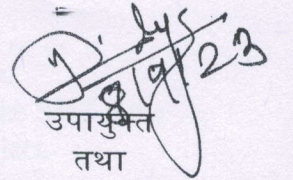 9/9/23
उपायुक्त
तथा